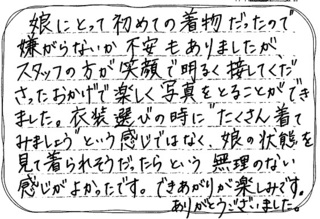 娘にとって初めての着物だったので
嫌がらないか不安もありましたが、
スタッフの方が笑顔で明るく接してくだ
さったおかげで楽しく写真をとることができ
ました。衣装選びの時に"たくさん着て
みましょう"という感じではなく、娘の状態を
見て着られそうだったらという無理のない
感じがよかったです。できあがりが楽しみです。
ありがとうございました。